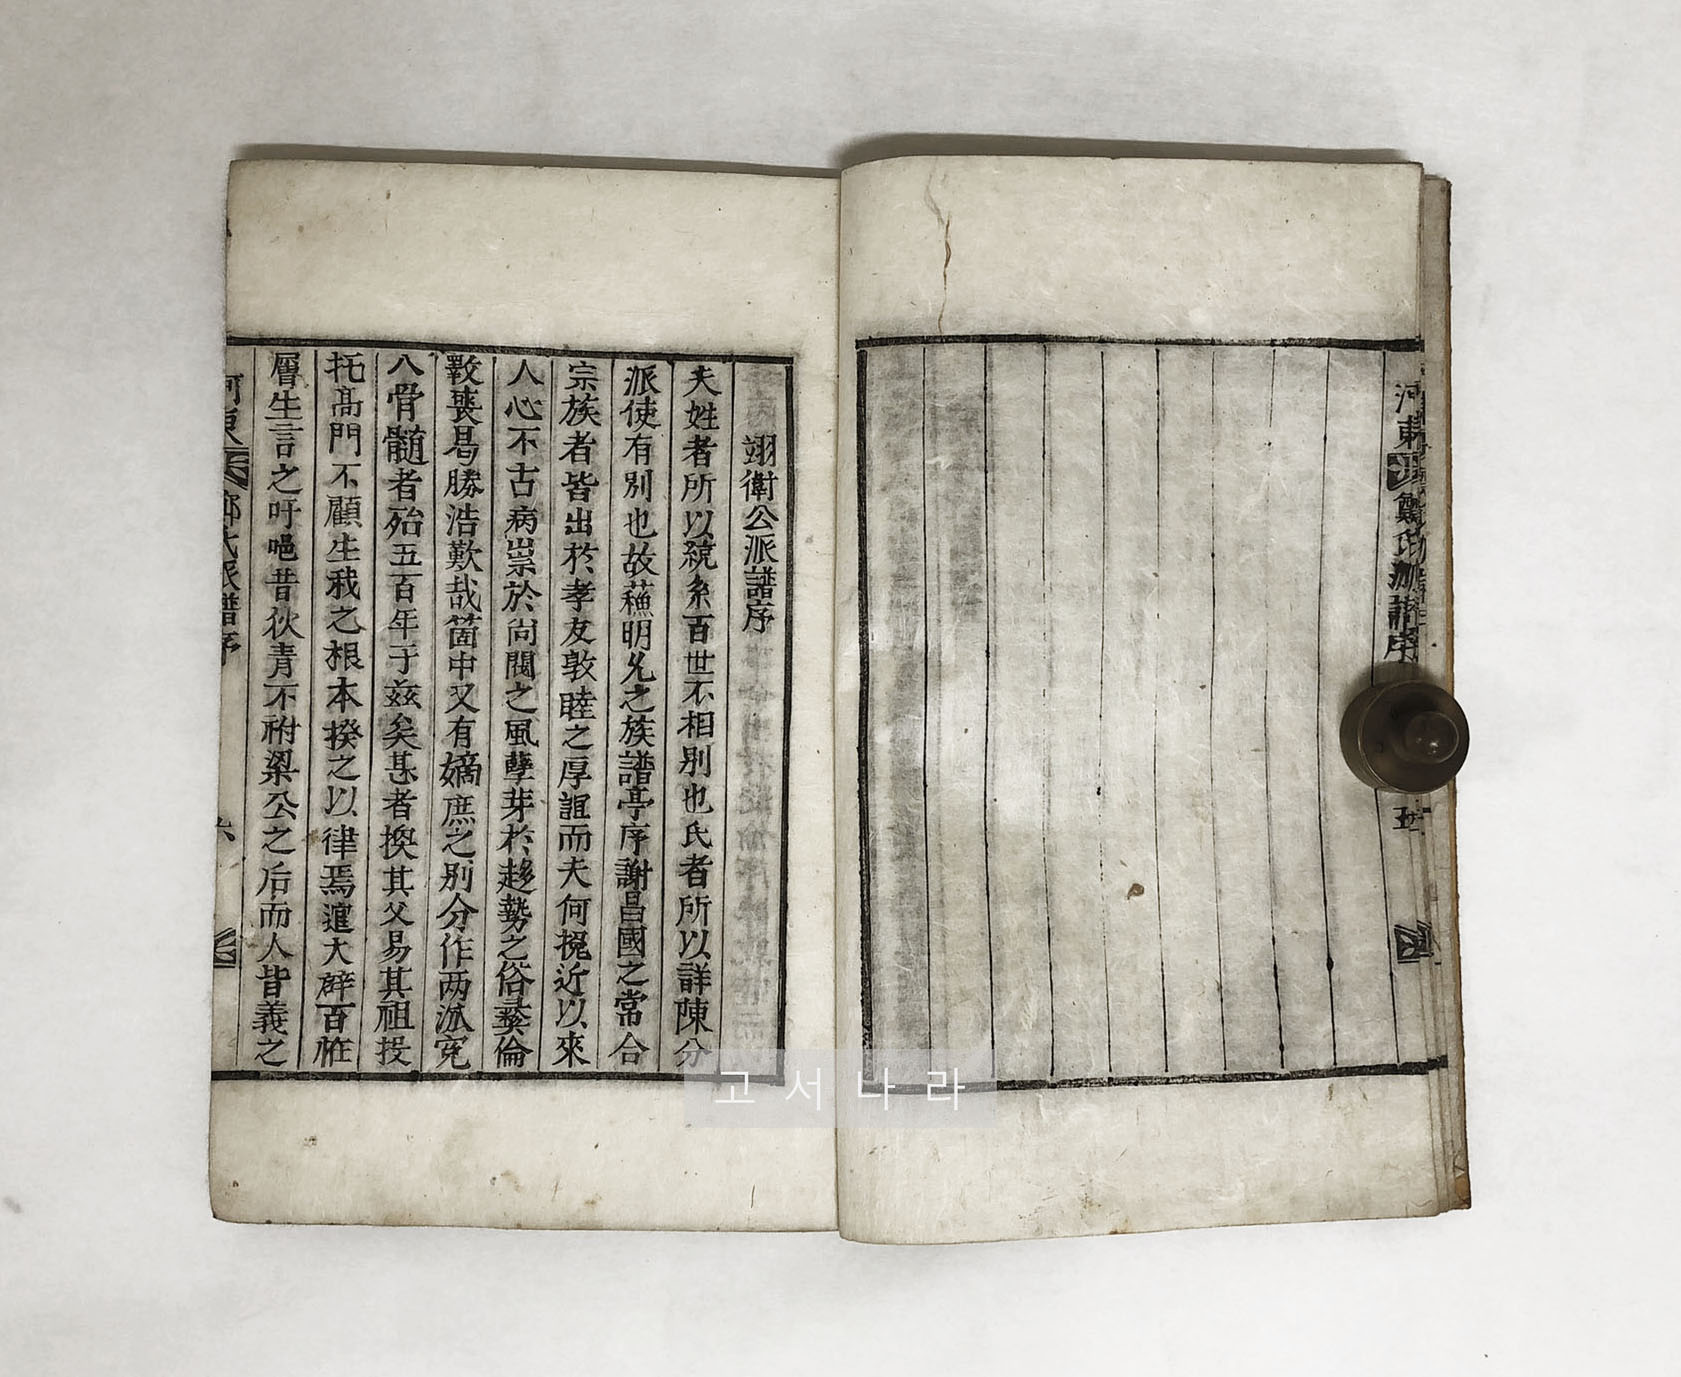 河東
鄭氏派譜序
五
翊衛公派譜序
夫姓者所以統系百世不相別也氏者所以詳陳分
派使有別也故蘓明允之族譜亭序謝昌國之常合
宗族者皆出於孝友敦睦之厚誼而夫何挽近以來
人心不古病祟於尙閥之風孽芽於趍勢之俗彛倫
斁喪曷勝浩歎哉箇中又有嫡庶之別分作两派寃
入骨髓者殆五百年于玆矣甚者換其父易其祖投
托高門不顧生我之根本揆之以律焉逭大辟百
層生言之吁唈昔狄青不祔梁公之后而人皆義之
河東
鄭氏派譜序
六
고서나라